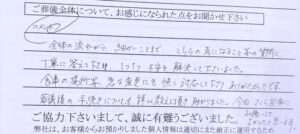 ご葬儀全体について、お感じになられた点をお聞かせ下さい
コメント
全体の流れから、細かいことまで こちらの気になること等の質問に
丁寧に答えて下さり 1つ1つ 不安を解決して下さいました。
食事の場所等、急な変更にも快く対応して下さり ありがたかったです。
葬儀後の手続きについても 詳しく教えて頂き 助かりました。今回
ご協力下さいまして、誠に有難うございました。
弊社は、お客様からお預かりしました個人情報は適切にまた厳正に運用